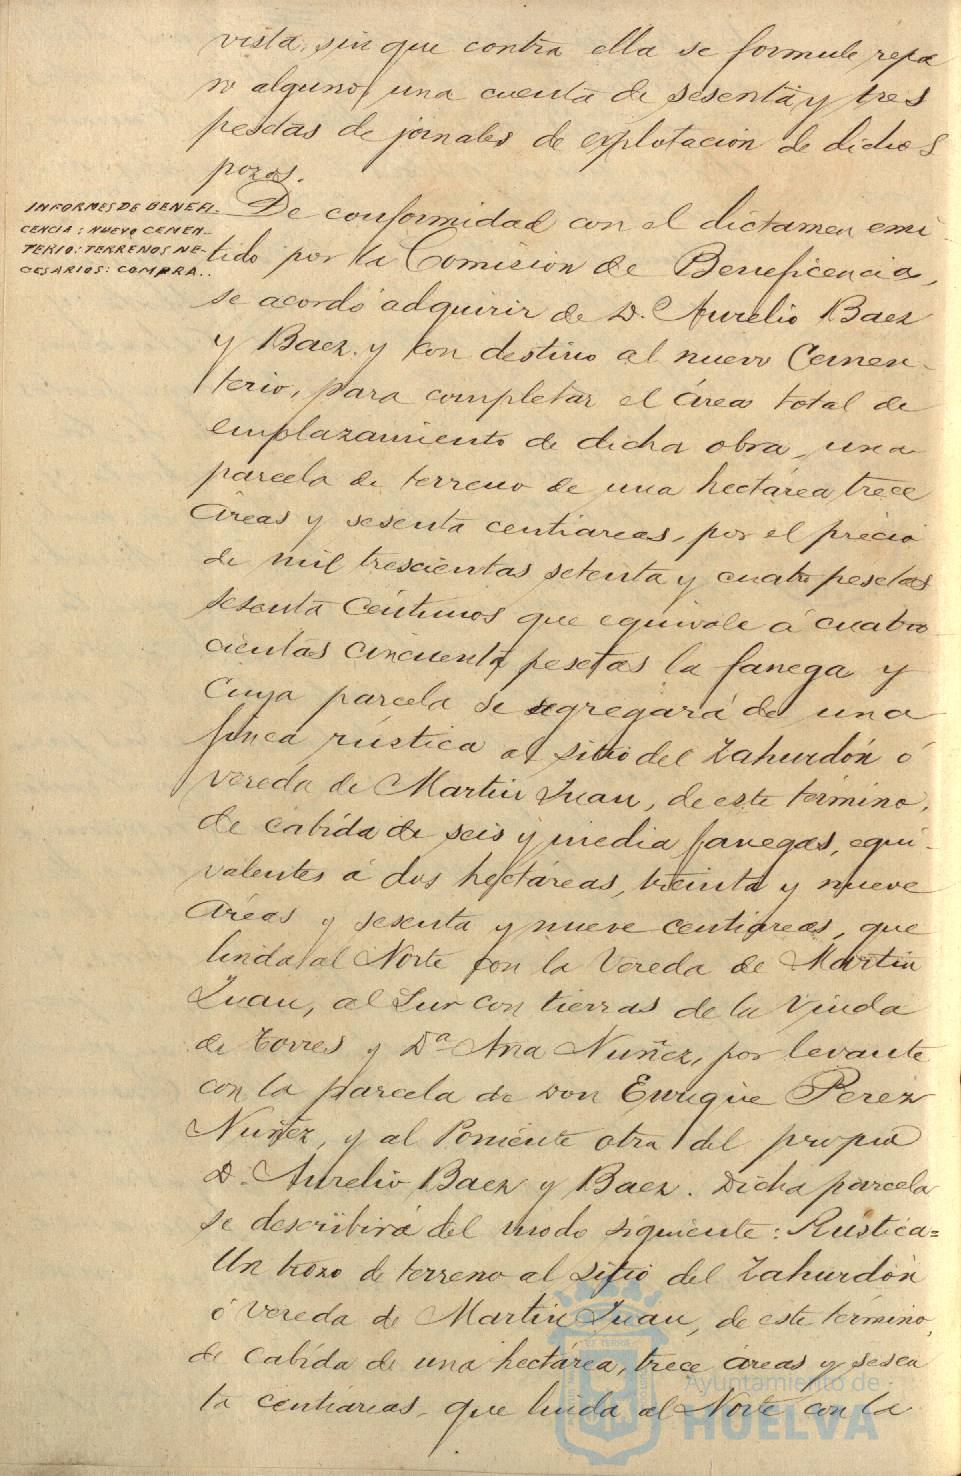 vista, sin que contra ella se formule repa
ro alguno, una cuenta de sesenta y tres
pesetas de jornales de explotacion de dichos
pozos.
INFORMES DE BENEFI-
CENCIA: NUEVO CEMEN-
TERIO: TERRENOS NE-
CESARIOS: COMPRA..
De conformidad con el dictamen emi
tido por la Comision de Beneficencia,
se acordó adquirir de D. Aurelio Baez
y Baez. y con destino al nuevo Cemen-
terio, para completar el área total de
emplazamiento de dicha obra, una
parcela de terreno de una hectárea trece
áreas y sesenta centiareas, por el precio
de mil trescientas setenta y cuatro pesetas
sesenta céntimos que equivale á cuatro
cientas cincuenta pesetas la fanega y
cuya parcela se segregará de una
finca rústica al sitio del Zahurdón ó
vereda de Martin Juan, de este término,
de cabída de seis y media fanegas, equi-
valentes á dos hectáreas, treinta y nueve
áreas y sesenta y nueve centiareas, que
linda al Norte con la Vereda de Martin
Juan, al Sur con tierras de la Viuda
de Torres y Dª Ana Nuñez, por levante
con la parcela de Don Enrique Perez
Nuñez, y al Poniente otra del propio
D. Aurelio Baez y Baez. Dicha parcela
se describirá del modo siguiente: Rústica=
Un trozo de terreno al sitio del Zahurdón
ó Vereda de Martin Juan, de este término,
de cabída de una hectárea, trece áreas y sesen
ta centiáreas, que linda al Norte con la
Ayuntamiento de
HUELVA